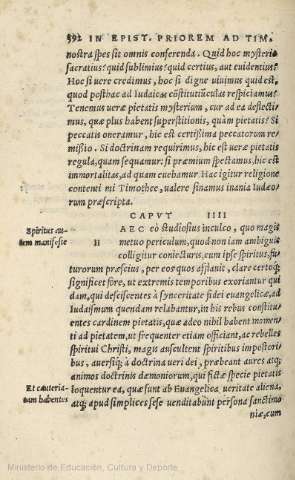 592 IN EPIST. PRIOREM AD TIM.
nostra spes sit omnis conferenda. Quid hoc mysterio
sacratius? quid sublimius? quid certius, aut euidentius?
Hoc si uere credimus, hoc si digne uiuimus quid est,
quod posthac ad Iudaicas cõstitutiũculas respiciamus?
Tenemus uerae pietatis mysterium, cur ad ea deflecti-
mus, quae plus habent superstitionis, quàm pietatis? Si
peccatis oneramur, hic est certissima peccatorum re-
missio. Si doctrinam requirimus, hic est uerae pietatis
regula, quam sequamur: si praemium spectamus, hic est
immortalitas, ad quam euehamur. Hac igitur religione
contenti mi Timothee, ualere sinamus inania Iudaeo-
rum praescripta.
CAPVT IIII
Spiritus au-
tem manifeste
H AEC eò studiosius inculco, quo magis
metuo periculum, quod non iam ambiguis
colligitur coniecturis, cum ipse spiritus, fu-
turorum praescius, per eos quos afflauit, clare certoq;
significet fore, ut extremis temporibus exoriantur qui
dam, qui desciscentes à synceritate fidei euangelicae, ad
Iudaismum quendam relabantur, in his rebus constitu-
entes cardinem pietatis, quae adeo nihil habent momen-
ti ad pietatem, ut frequenter etiam officiant, ac rebelles
spiritui Christi, magis auscultent spiritibus impostori-
bus, auersiq; à doctrina uere dei, praebeant aures atq;
animos doctrinis daemoniorum, qui fictae specie pietatis
Et cauteria-
tam habentes
loquentur ea, quae sunt ab Euangelica ueritate aliena,
atq; apud simplices sese uenditabũt persona sanctimo
niae, cum
Ministerio de Educación, Cultura y Deporte